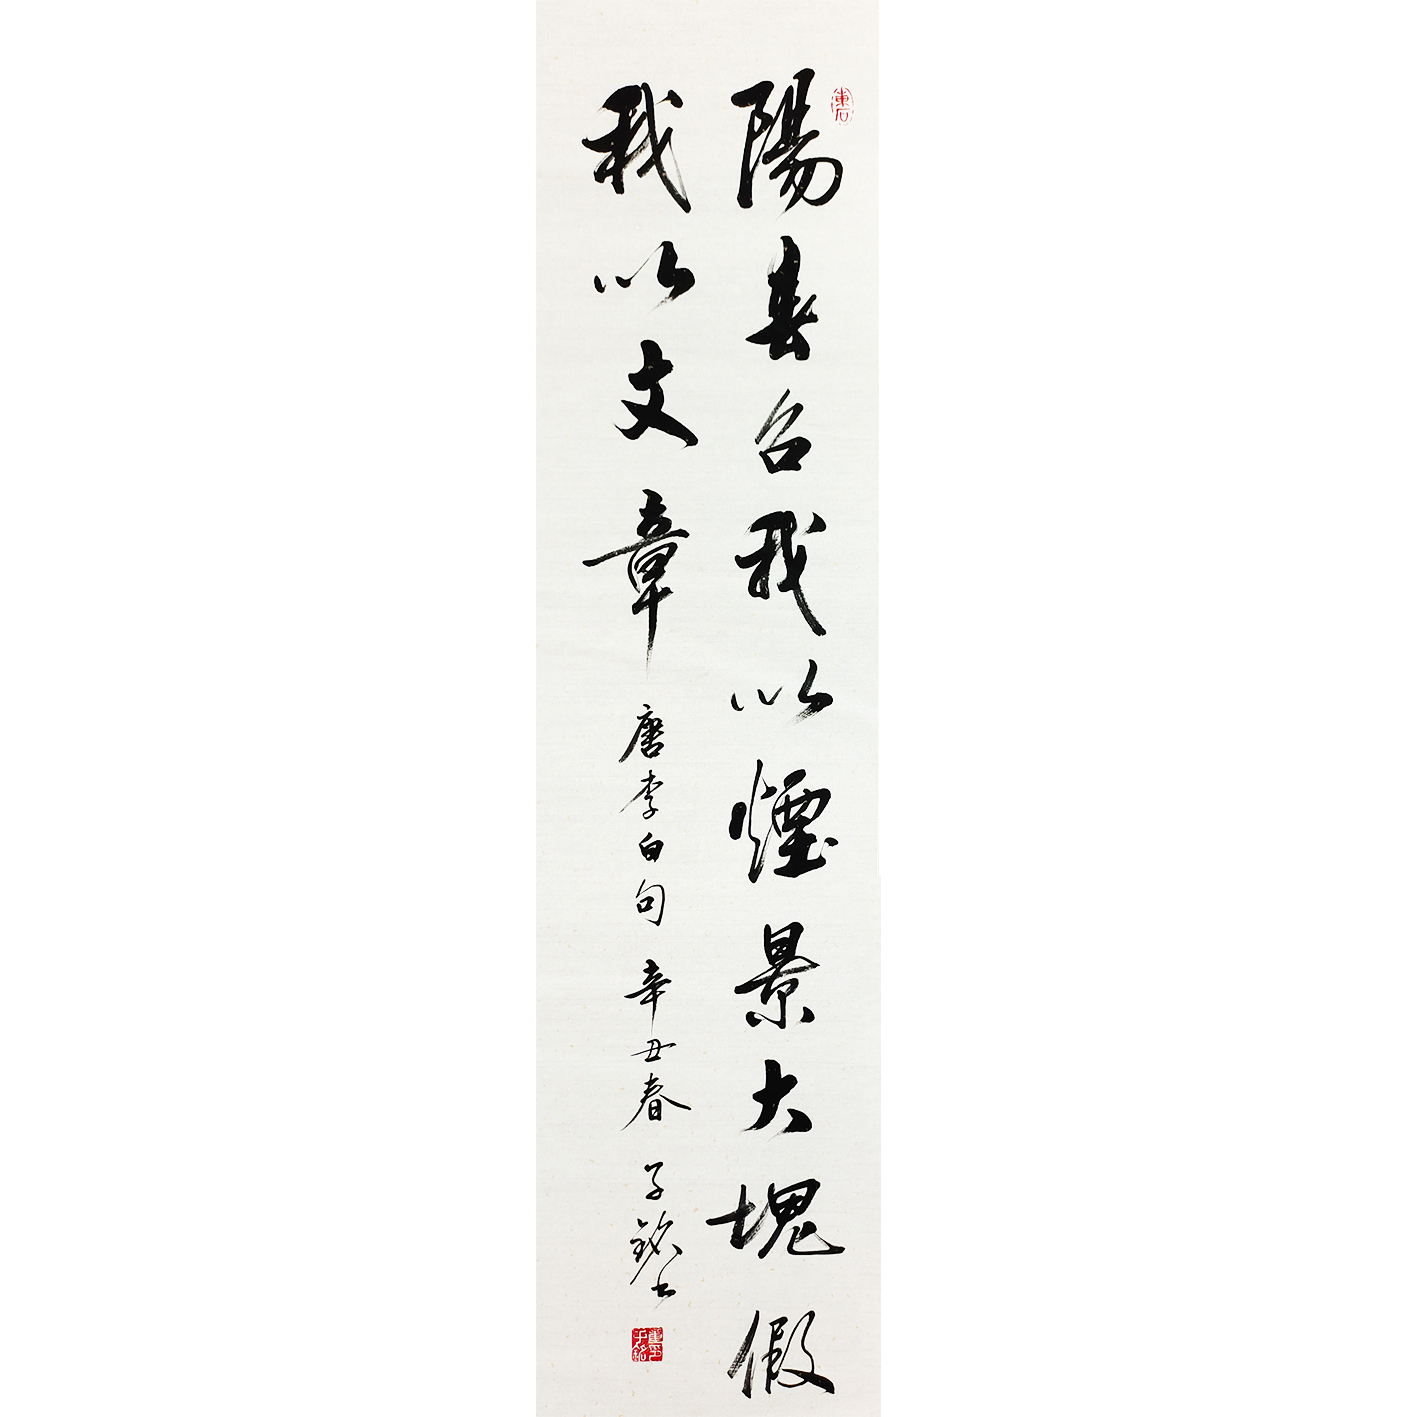 陽春召我以煙景大塊假
我以文章 唐李白句 辛丑春 子銘書
東石